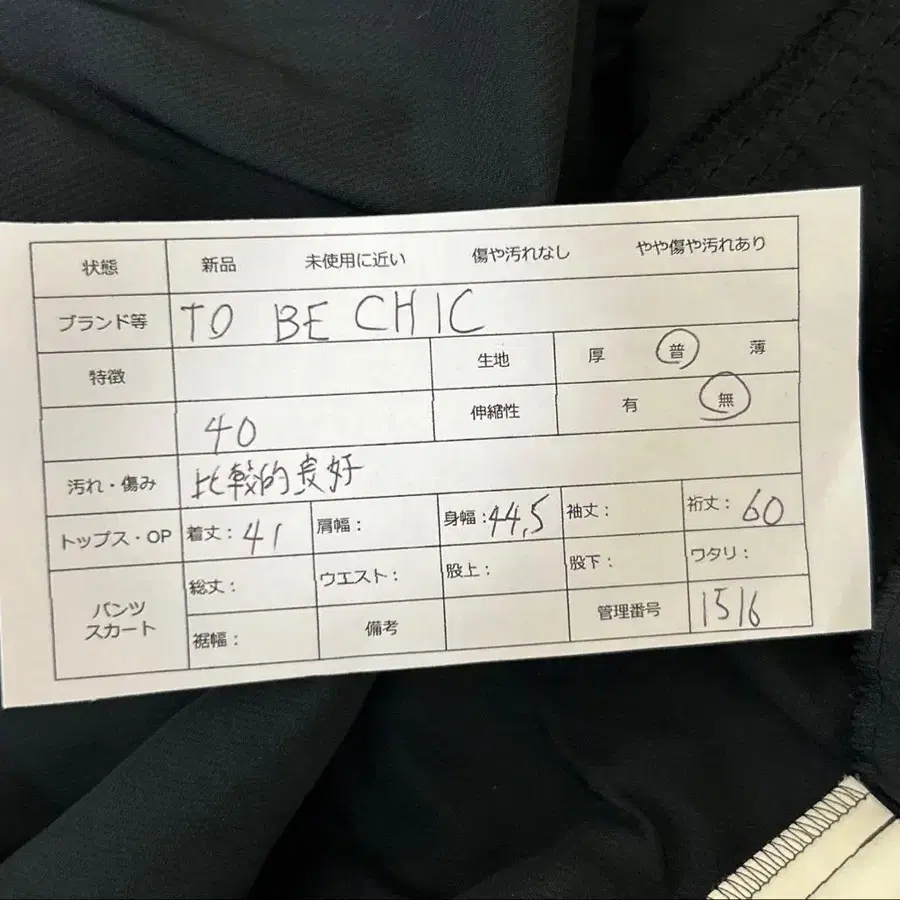 状態 新品 未使用に近い 傷や汚れなし やや傷や汚れあり
ブランド等 TO BE CHIC
特徴 生地 厚 普 薄
40 伸縮性 有 無
汚れ・傷み 比較的良好
トップス・OP 着丈：41 肩幅： 身幅：44,5 袖丈： 裄丈：60
パンツ スカート 総丈： ウエスト： 股上： 股下： ワタリ：
裾幅： 備考 管理番号 1516